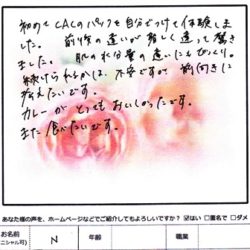 初めてCACのパックを自分でつけて体験しま
した。前後の違いが難しく違って驚き
ました。肌の水分量の違いにもびっくり。
続けられるかは、不安ですが前向きに
考えたいです。
カレーがとってもおいしかったです。
また食べたいです。
あなた様の声を、ホームページなどでご紹介してもよろしいですか？ ☑はい □匿名で □ダメ
お名前
ニシャル可)
N
年齢
職業